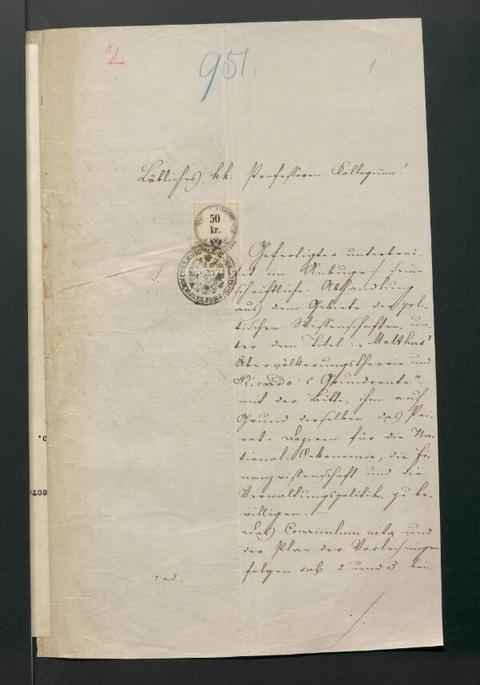 2
951.
1
Löbliches k.k. Professoren Kollegium!
50
kr.
Gefertigter unterbrei-
tet im Anbuge ·/· seine
schriftliche Abhandlung
aus dem Gebiete der poli-
tischen Wissenschaften, un-
ter dem Titel: „Malthus'
Übervölkerungstheorie und
Ricardo's Grundrente"
mit der Bitte, ihm auf
Grund derselben das Pri-
vat-Dozieren für die Na-
tional-Oekonomie, die Fi-
nanzwissenschaft und die
Verwaltungspolitik zu be-
willigen.
Das Curriculum vitae und
der Plan der Vorlesungen
folgen sub 2 und 3 bei